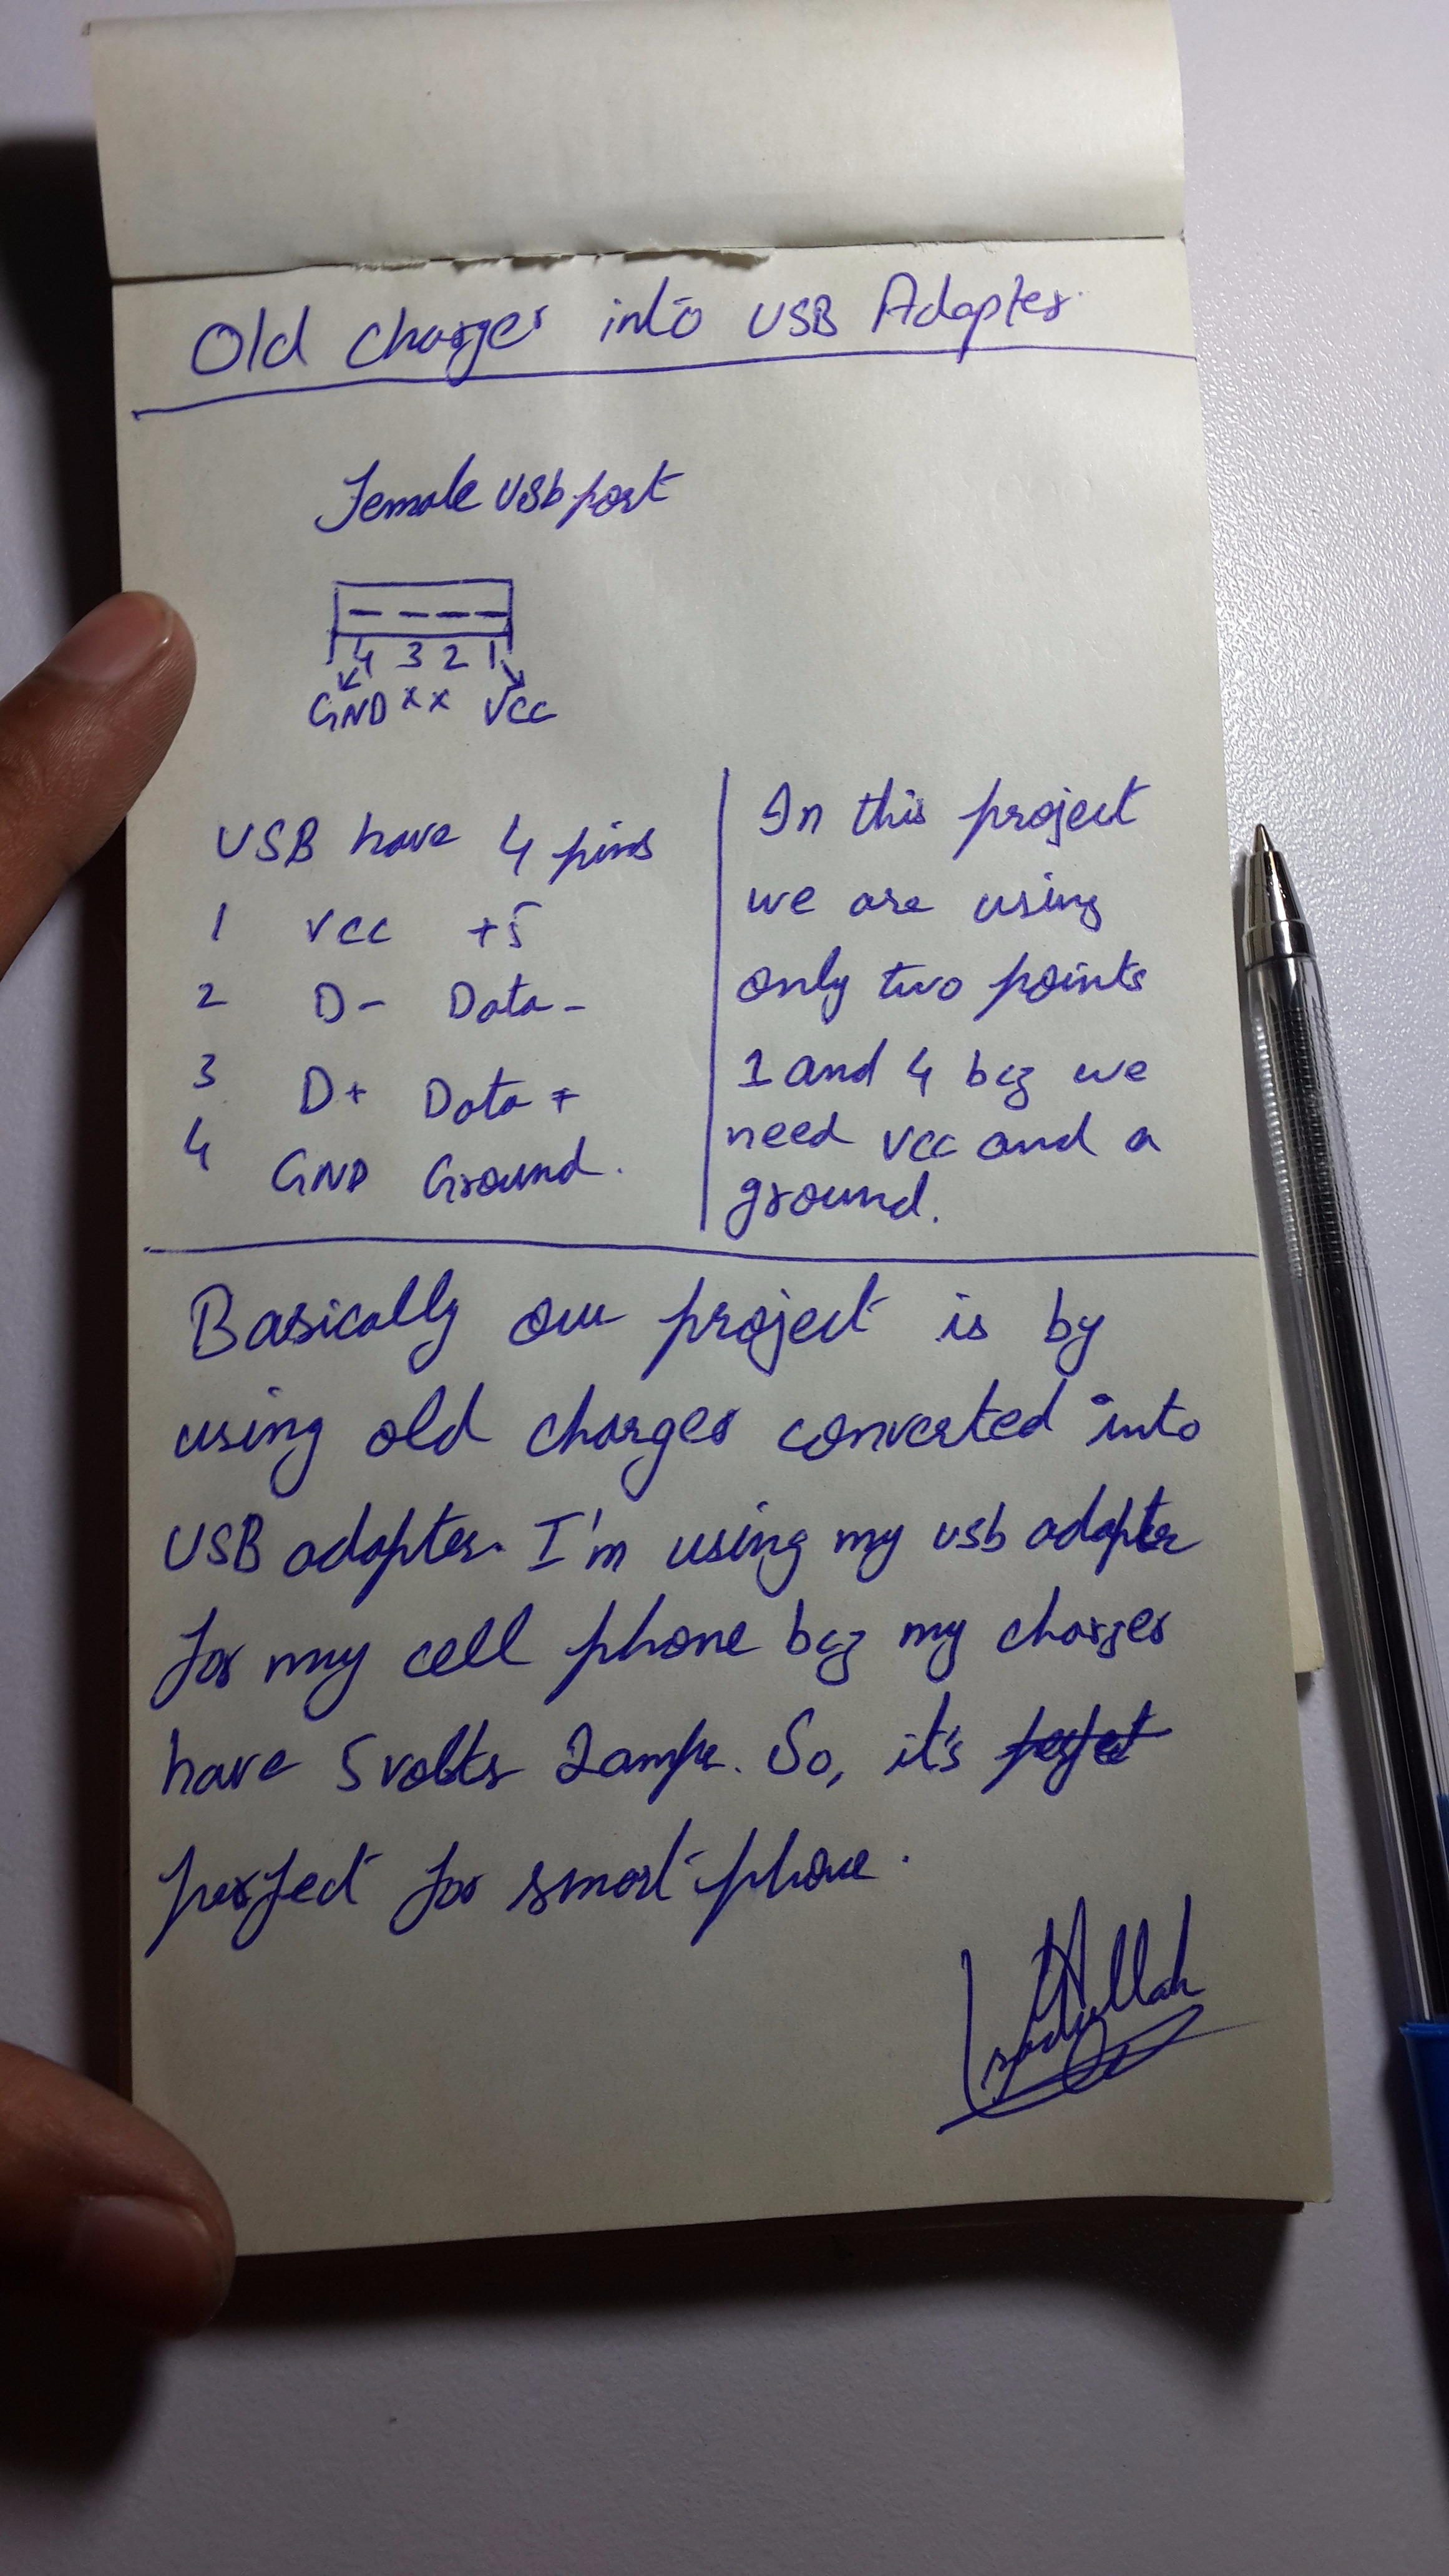 Old charger into USB Adapter.
Female usb port
4 3 2 1
GND x x Vcc
USB have 4 pins
1 Vcc +5
2 D- Data-
3 D+ Data+
4 GND Ground.
In this project
we are using
only two points
1 and 4 bcz we
need Vcc and a
ground.
Basically our project is by
using old charger converted into
USB adapter. I'm using my usb adapter
for my cell phone bcz my charger
have 5 volts 2 amps. So, it's
perfect for smart phone.